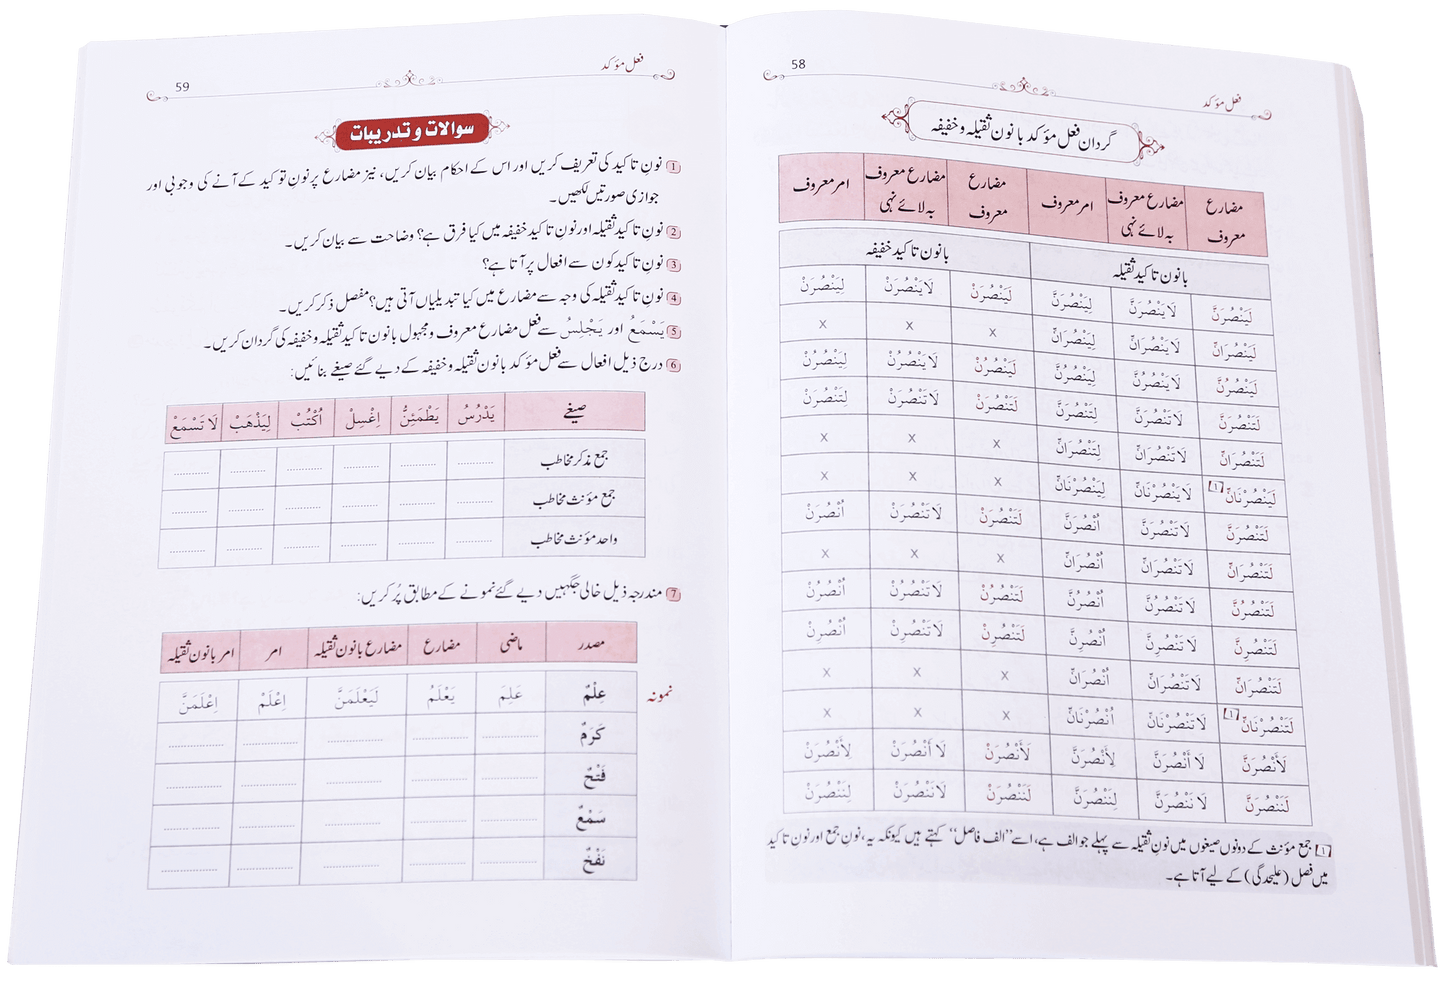 58
فعل مؤکد
گردان فعل مؤکد بانون ثقیلہ و خفیفہ
مضارع معروف | مضارع معروف بہ لائے نہی | امر معروف | مضارع معروف | مضارع معروف بہ لائے نہی | امر معروف
بانون تاکید ثقیلہ | بانون تاکید خفیفہ
لَيَنْصُرَنَّ | لَا يَنْصُرَنَّ | لِيَنْصُرَنَّ | لَيَنْصُرَنْ | لَا يَنْصُرَنْ | لِيَنْصُرَنْ
لَيَنْصُرَانِّ | لَا يَنْصُرَانِّ | لِيَنْصُرَانِّ | x | x | x
لَيَنْصُرُنَّ | لَا يَنْصُرُنَّ | لِيَنْصُرُنَّ | لَيَنْصُرُنْ | لَا يَنْصُرُنْ | لِيَنْصُرُنْ
لَتَنْصُرَنَّ | لَا تَنْصُرَنَّ | لِتَنْصُرَنَّ | لَتَنْصُرَنْ | لَا تَنْصُرَنْ | لِتَنْصُرَنْ
لَتَنْصُرَانِّ | لَا تَنْصُرَانِّ | لِتَنْصُرَانِّ | x | x | x
لَيَنْصُرْنَانِّ [1] | لَا يَنْصُرْنَانِّ | لِيَنْصُرْنَانِّ | x | x | x
لَتَنْصُرَنَّ | لَا تَنْصُرَنَّ | اُنْصُرَنَّ | لَتَنْصُرَنْ | لَا تَنْصُرَنْ | اُنْصُرَنْ
لَتَنْصُرَانِّ | لَا تَنْصُرَانِّ | اُنْصُرَانِّ | x | x | x
لَتَنْصُرُنَّ | لَا تَنْصُرُنَّ | اُنْصُرُنَّ | لَتَنْصُرُنْ | لَا تَنْصُرُنْ | اُنْصُرُنْ
لَتَنْصُرِنَّ | لَا تَنْصُرِنَّ | اُنْصُرِنَّ | لَتَنْصُرِنْ | لَا تَنْصُرِنْ | اُنْصُرِنْ
لَتَنْصُرَانِّ | لَا تَنْصُرَانِّ | اُنْصُرَانِّ | x | x | x
لَتَنْصُرْنَانِّ [1] | لَا تَنْصُرْنَانِّ | اُنْصُرْنَانِّ | x | x | x
لَأَنْصُرَنَّ | لَا أَنْصُرَنَّ | لِأَنْصُرَنَّ | لَأَنْصُرَنْ | لَا أَنْصُرَنْ | لِأَنْصُرَنْ
لَنَنْصُرَنَّ | لَا نَنْصُرَنَّ | لِنَنْصُرَنَّ | لَنَنْصُرَنْ | لَا نَنْصُرَنْ | لِنَنْصُرَنْ
[1] جمع مؤنث کے دونوں صیغوں میں نون ثقیلہ سے پہلے جو الف ہے، اسے ”الف فاصل“ کہتے ہیں کیونکہ یہ، نونِ جمع اور نون تاکید
میں فصل (علیحدگی) کے لیے آتا ہے۔
فعل مؤکد
59
سوالات و تدریبات
1 نونِ تاکید کی تعریف کریں اور اس کے احکام بیان کریں، نیز مضارع پر نونِ توکید کے آنے کی وجوبی اور
جوازی صورتیں لکھیں۔
2 نونِ تاکید ثقیلہ اور نونِ تاکید خفیفہ میں کیا فرق ہے؟ وضاحت سے بیان کریں۔
3 نونِ تاکید کون سے افعال پر آتا ہے؟
4 نونِ تاکید ثقیلہ کی وجہ سے مضارع میں کیا تبدیلیاں آتی ہیں؟ مفصل ذکر کریں۔
5 يَسْمَعُ اور يَجْلِسُ سے فعل مضارع معروف و مجہول بانون تاکید ثقیلہ و خفیفہ کی گردان کریں۔
6 درج ذیل افعال سے فعل مؤکد بانون ثقیلہ و خفیفہ کے دیے گئے صیغے بنائیں:
صیغے | يَدْرُسُ | يَطْمَئِنُّ | اِغْسِلْ | اُكْتُبْ | لِيَذْهَبْ | لَا تَسْمَعْ
جمع مذکر مخاطب
جمع مؤنث مخاطب
واحد مؤنث مخاطب
7 مندرجہ ذیل خالی جگہیں دیے گئے نمونے کے مطابق پُر کریں:
مصدر | ماضی | مضارع | مضارع بانون ثقیلہ | امر | امر بانون ثقیلہ
نمونہ | عِلْمٌ | عَلِمَ | يَعْلَمُ | لَيَعْلَمَنَّ | اِعْلَمْ | اِعْلَمَنَّ
كَرَمٌ
فَتْحٌ
سَمْعٌ
نَفْخٌ